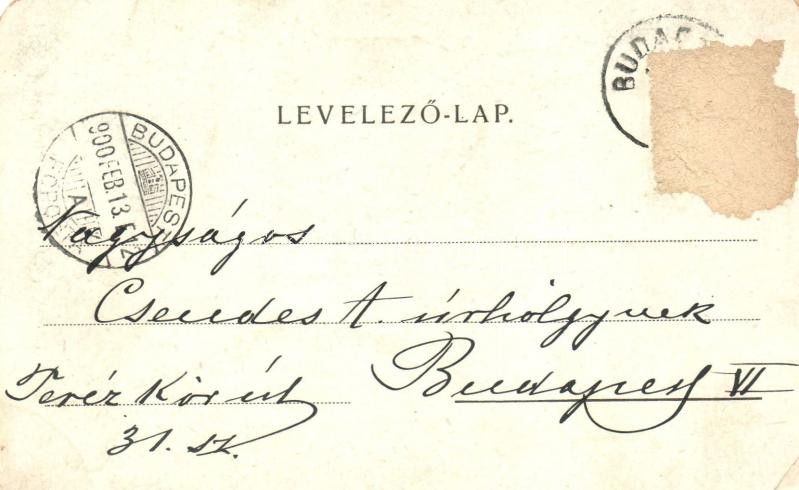 LEVELEZŐ-LAP.
BUDAPES
900 FEB. 13.
BUDAP
Nagyságos
Csendes A. úrhölgynek
Budapest VI
Teréz Kör út
31. sz.